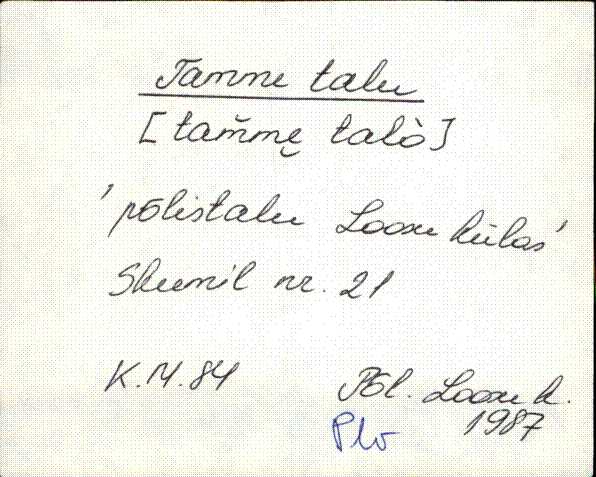 Tamme talu
[tam̆mȩ talò]
'põlistalu Loosu külas'
Skeemil nr. 21
K.M.84
Põl. Loosu k.
Plv 1987